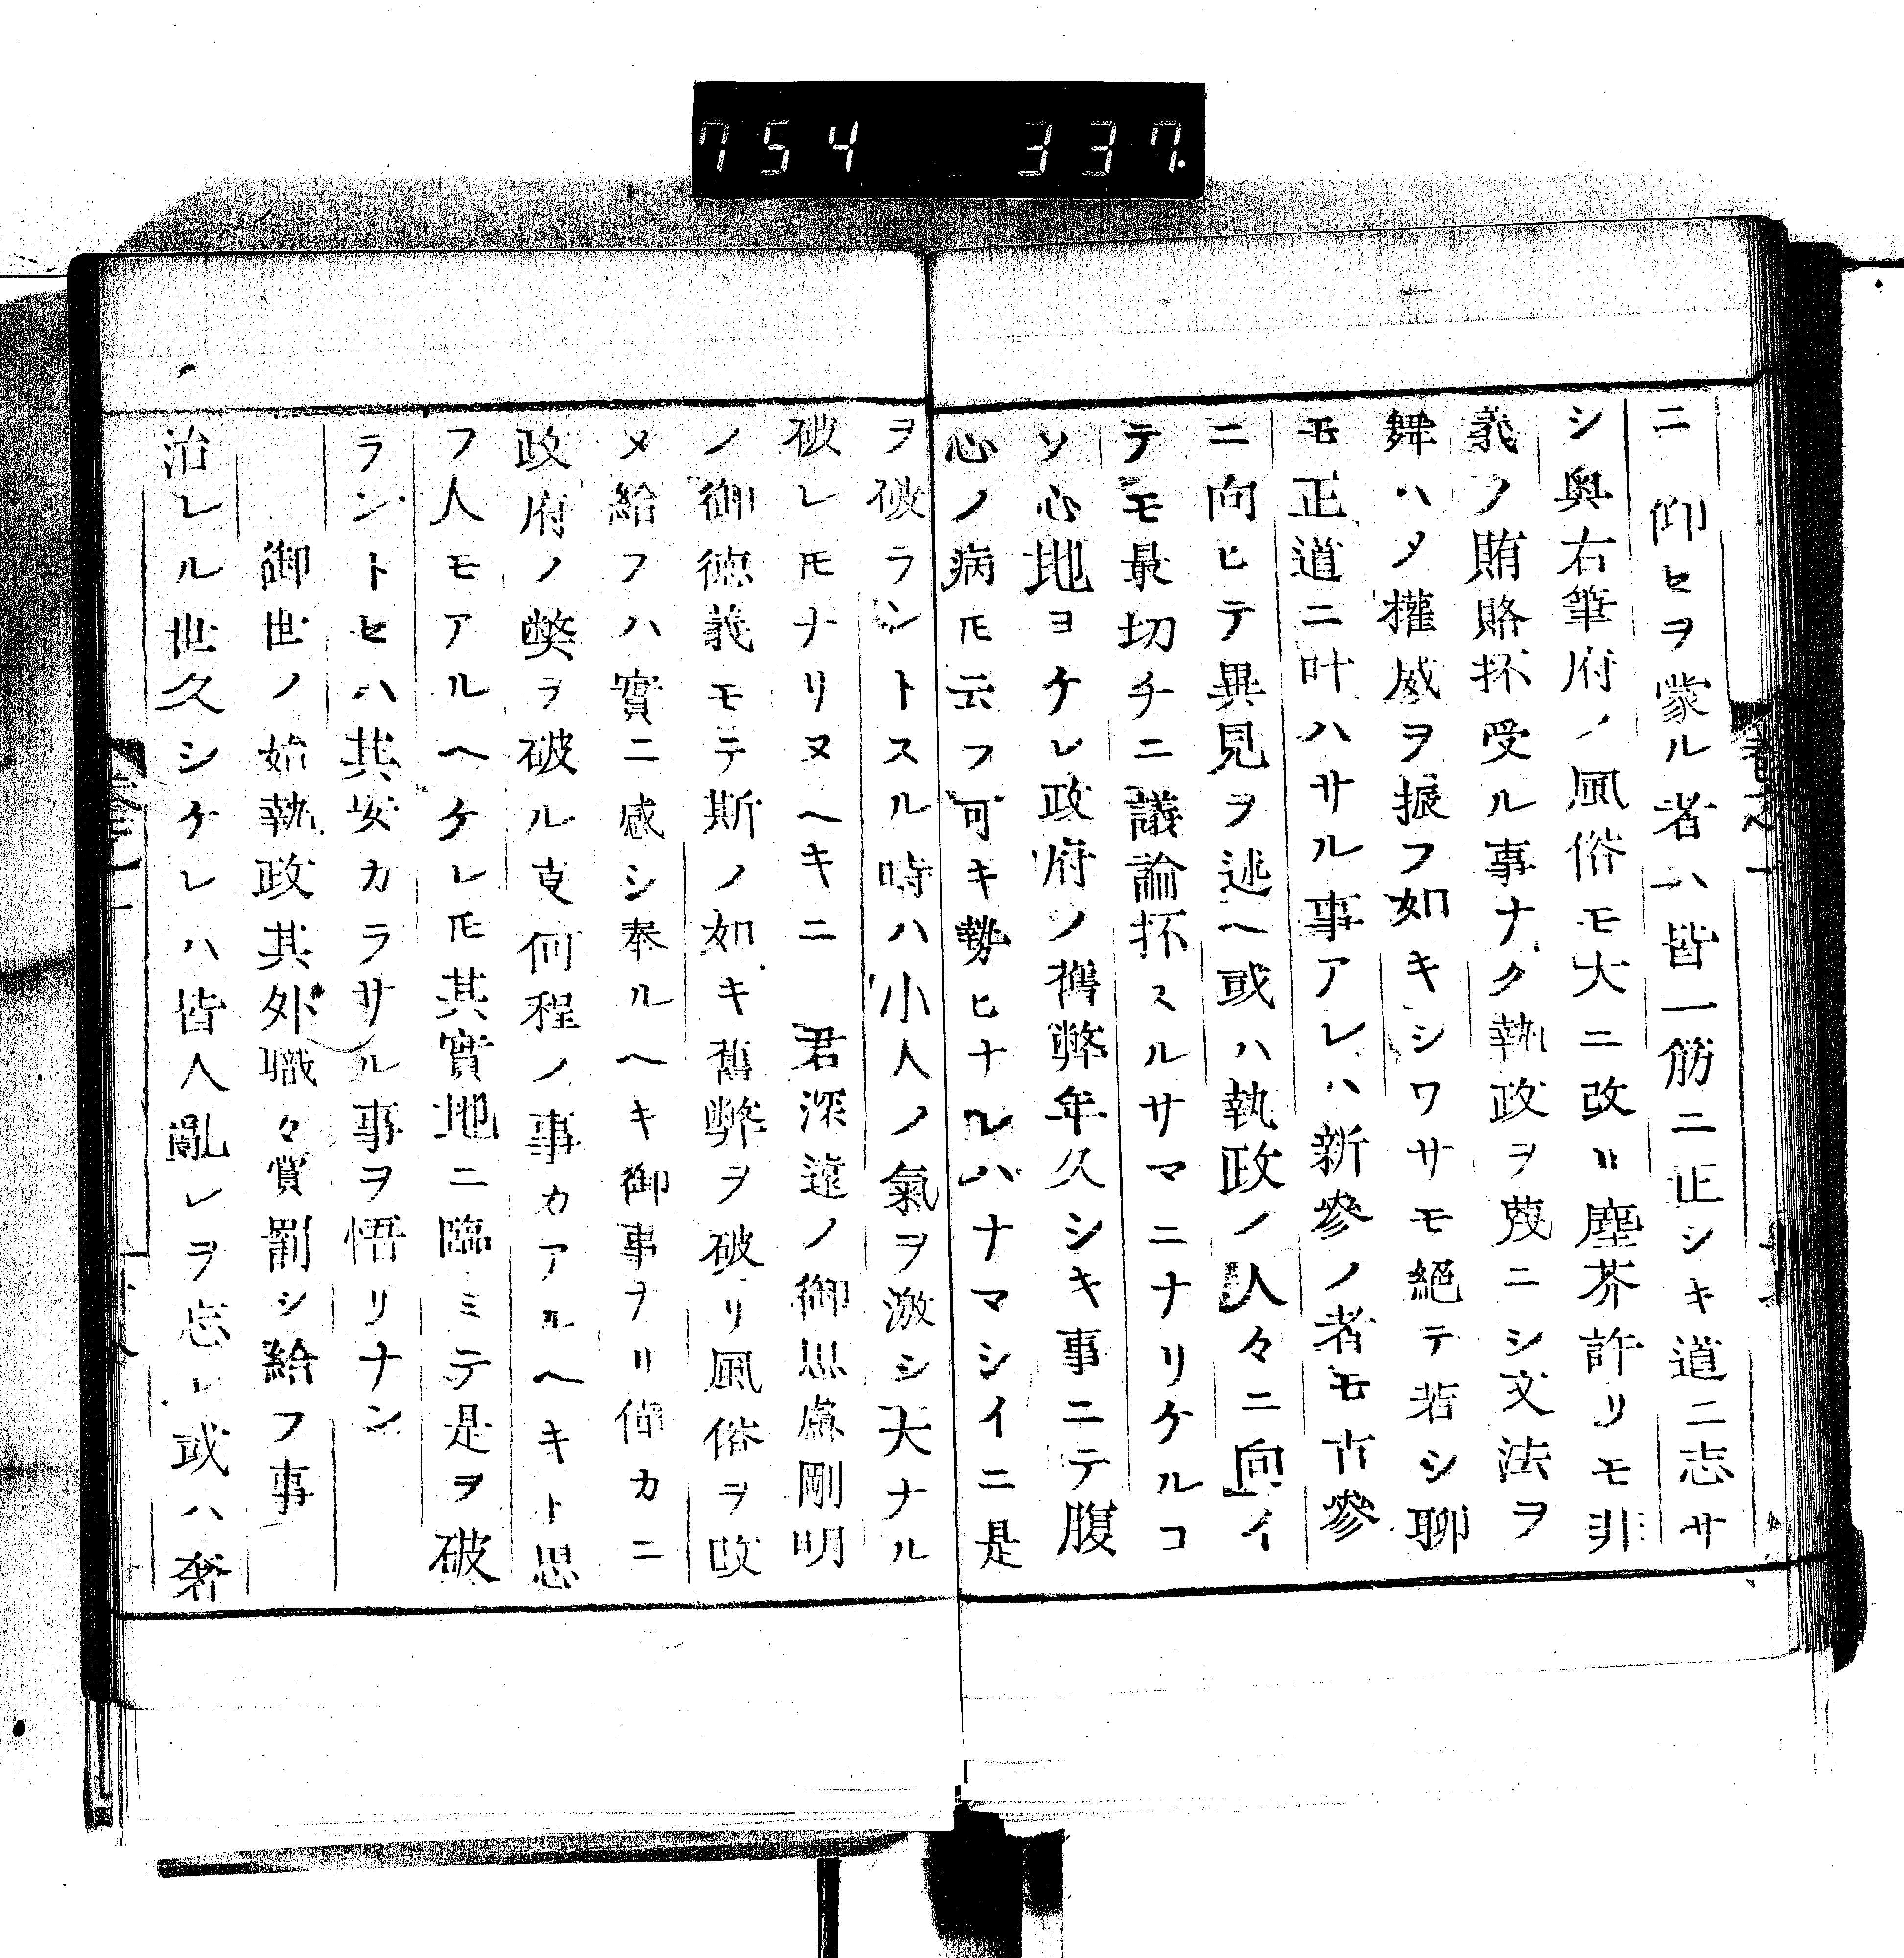 754 337
ニ 仰ヒヲ蒙ル者ハ皆一筋ニ正シキ道ニ志サ
シ奥右筆府ノ風俗モ大ニ改リ塵芥許リモ非
義ノ賄賂抔受ル事ナク執政ヲ蔑ニシ文法ヲ
舞ハメ權威ヲ振フ如キシワサモ絕テ若シ聊
モ正道ニ叶ハサル事アレハ新參ノ者モ古參
ニ向ヒテ異見ヲ述ヘ或ハ執政ノ人々ニ向イ
テモ最切チニ議論抔スルサマニナリケルコ
ソ心地ヨケレ政府ノ舊弊年久シキ事ニテ腹
心ノ病𪜈云フ可キ勢ヒナレハナマシイニ是
ヲ破ラントスル時ハ小人ノ氣ヲ激シ大ナル
破レ𪜈ナリヌヘキニ 君深遠ノ御思慮剛明
ノ御德義モテ斯ノ如キ舊弊ヲ破リ風俗ヲ改
メ給フハ實ニ感シ奉ルヘキ御事ナリ仰カニ
政府ノ弊ヲ破ル𫝆何程ノ事カアルヘキト思
フ人モアルヘケレ𪜈其實地ニ臨ミテ是ヲ破
ラントセハ其安カラサル事ヲ悟リナン
御世ノ始執政其外職々賞罰シ給フ事
治レル世久シケレハ皆人亂レヲ忘レ或ハ奢